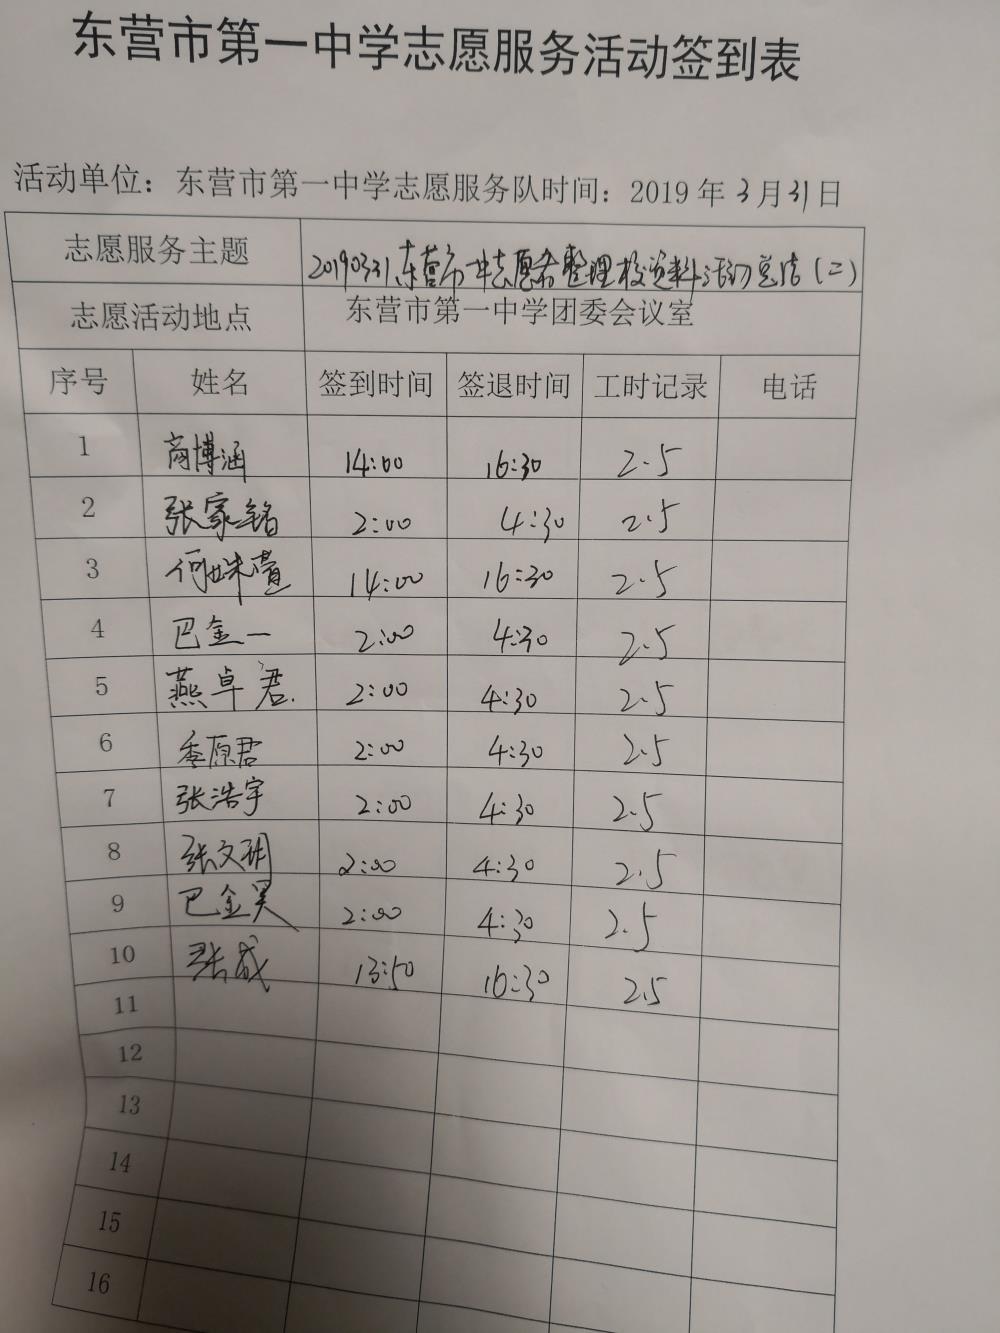 东营市第一中学志愿服务活动签到表
活动单位：东营市第一中学志愿服务队时间：2019年3月31日
志愿服务主题 20190331东营市一中志愿者整理校资料活动总结（二）
志愿活动地点 东营市第一中学团委会议室
序号 姓名 签到时间 签退时间 工时记录 电话
1 商博涵 14:00 16:30 2.5
2 张家铭 2:00 4:30 2.5
3 何姝萱 14:00 16:30 2.5
4 巴金一 2:00 4:30 2.5
5 燕卓君 2:00 4:30 2.5
6 季原君 2:00 4:30 2.5
7 张浩宇 2:00 4:30 2.5
8 张文玥 2:00 4:30 2.5
9 巴金昊 2:00 4:30 2.5
10 13:50 16:30 2.5
11
12
13
14
15
16